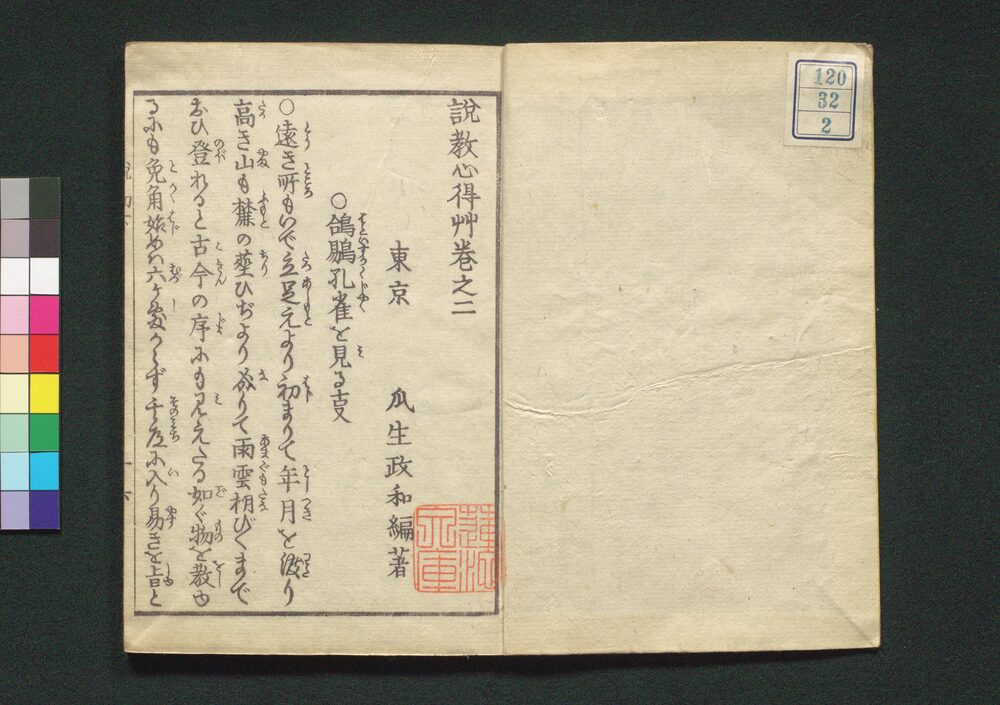 120
32
2
說教心得艸巻之二
東京 瓜生政和編著
○鴿鵰孔雀を見る事
○遠き所もいで立足元より初まりて年月を渡り
高き山も麓の塵ひぢより成りて雨雲棚びくまで
おひ登れると古今の序にも見えたる如く物を教ゆ
るにも兎角始めは六ケ敷からず其道に入り易きを旨と